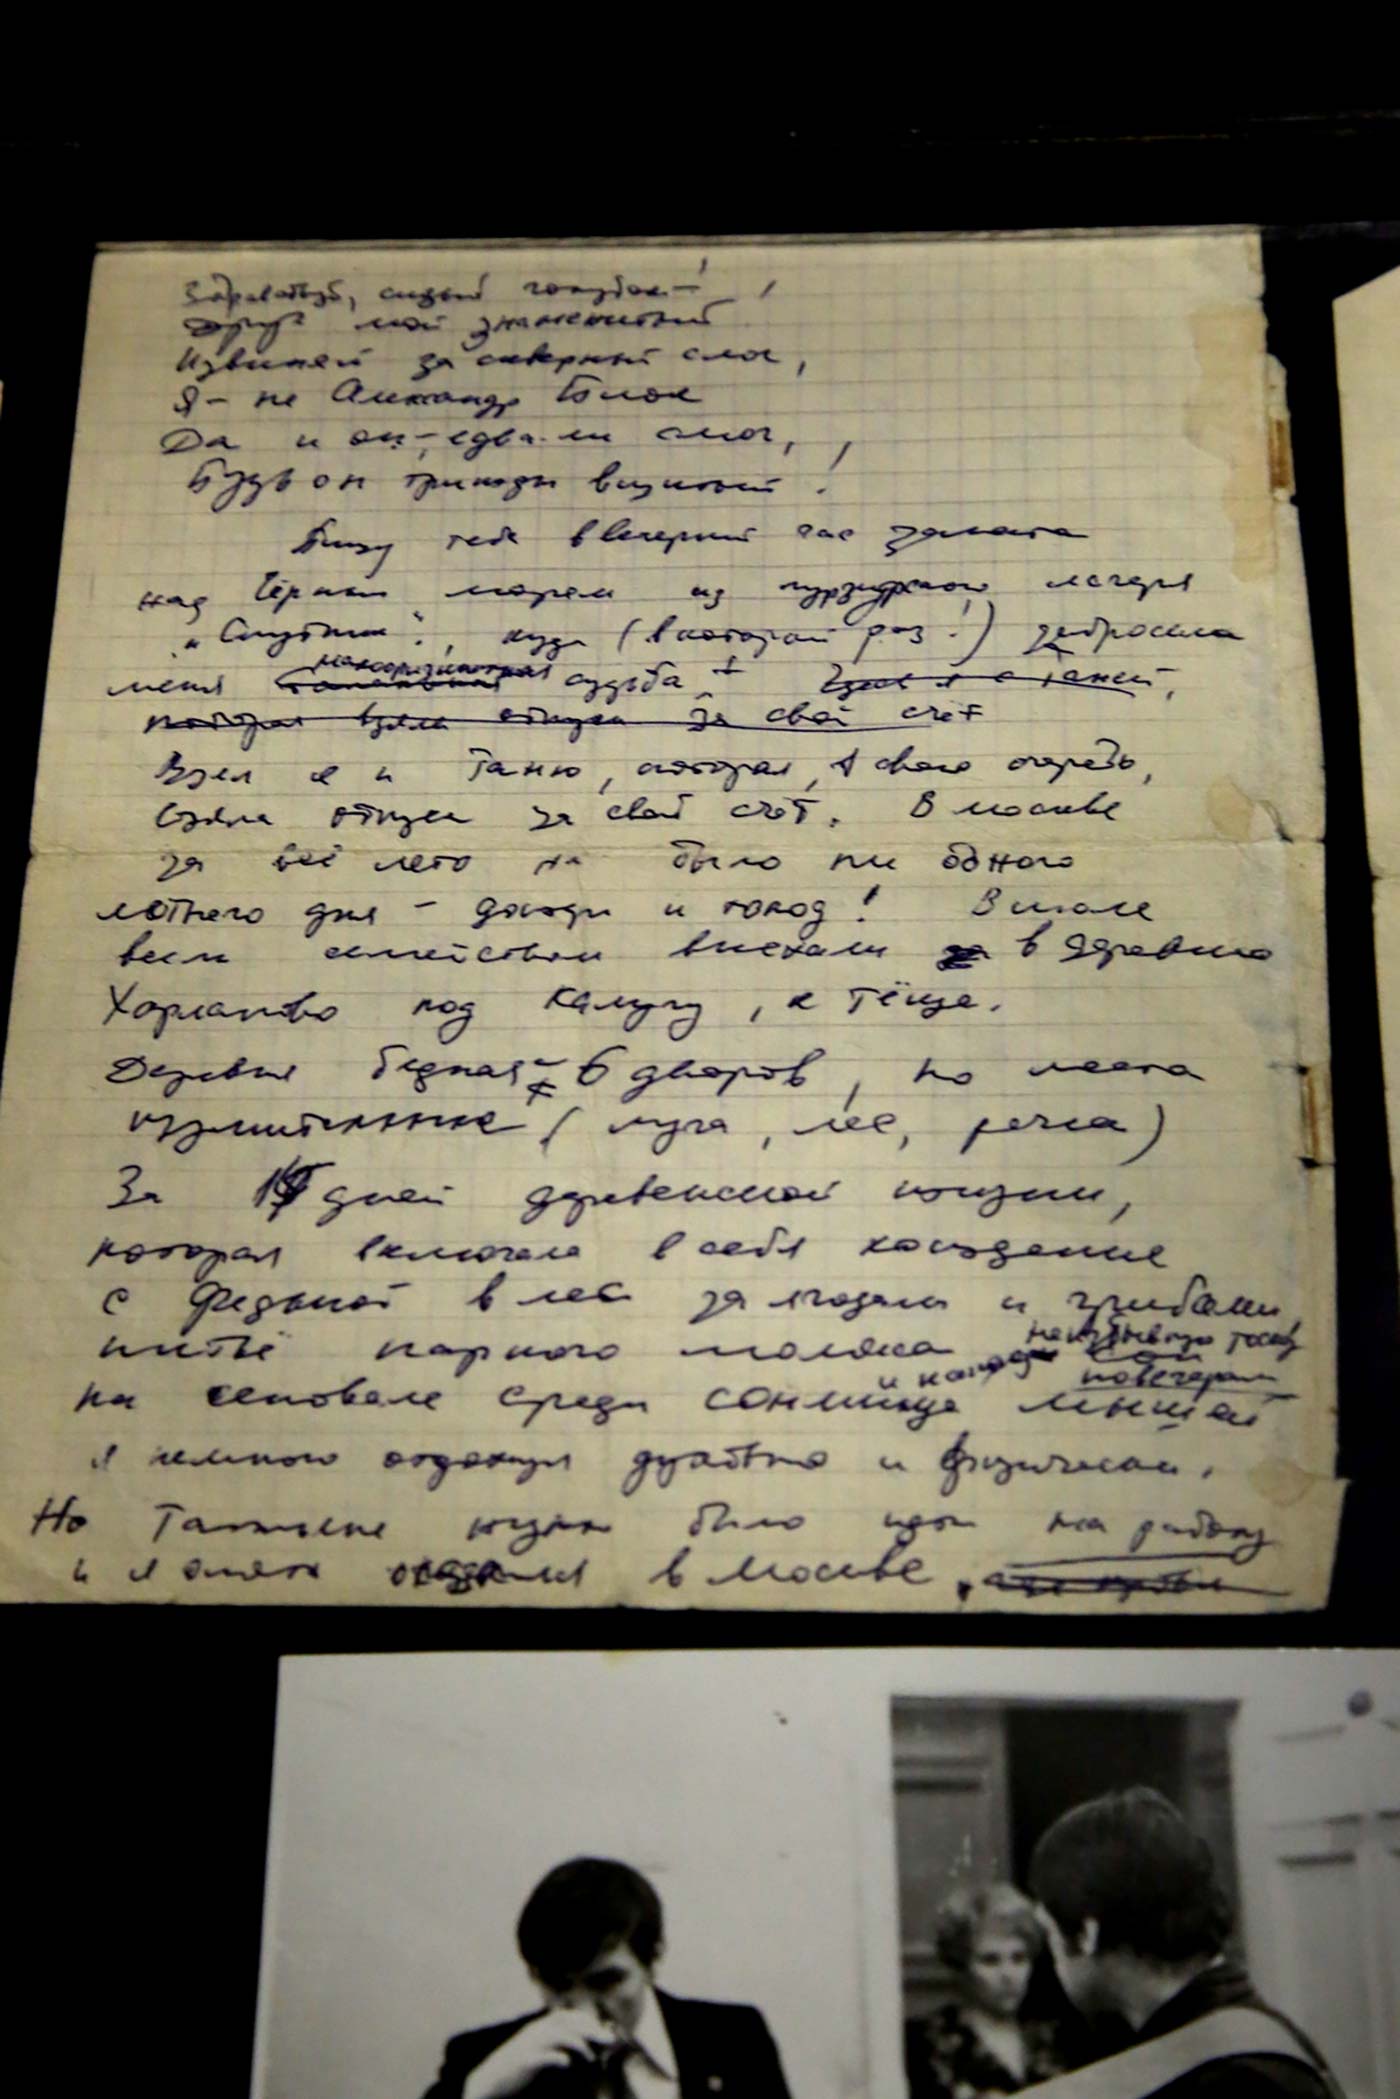 Здравствуй, сизый голубок –
друг мой знаменитый!
Извиняй за скверный слог,
Я – не Александр Блок
Да и он – едва-ли смог,
Будь он трижды
Пишу тебе в вечерний час заката
над Чёрным морем из гурзуфского лагеря
„Спутник", куда (в который раз!) забросила
меня судьба
которая взяла отпуск за свой счёт
Взял я и Таню, которая, в свою очередь,
взяла отпуск за свой счёт. В Москве
за всё лето не было ни одного
летнего дня – дожди и холод! В июле
всем семейством выехали в деревню
Харланово под Калугу, к тёще.
Деревня бедная – 6 дворов, но места
изумительные (луга, лес, речка)
За дней деревенской жизни,
которая включала в себя хождение
с Федькой в лес за ягодами и грибами
питьё парного молока
и по вечерам
на сеновале среди сонмища мышей
я немного отдохнул душевно и физически.
Но Татьяне нужно было на работу
и я опять оказался в Москве,